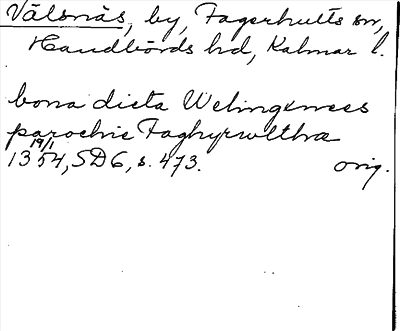 Välsnäs, by, Fagerhults sn,
Handbörds hd, Kalmar l.
bona dicta Welingxnees
parochie Faghyrwltha
19/1
1354, SD 6, s. 473. orig.